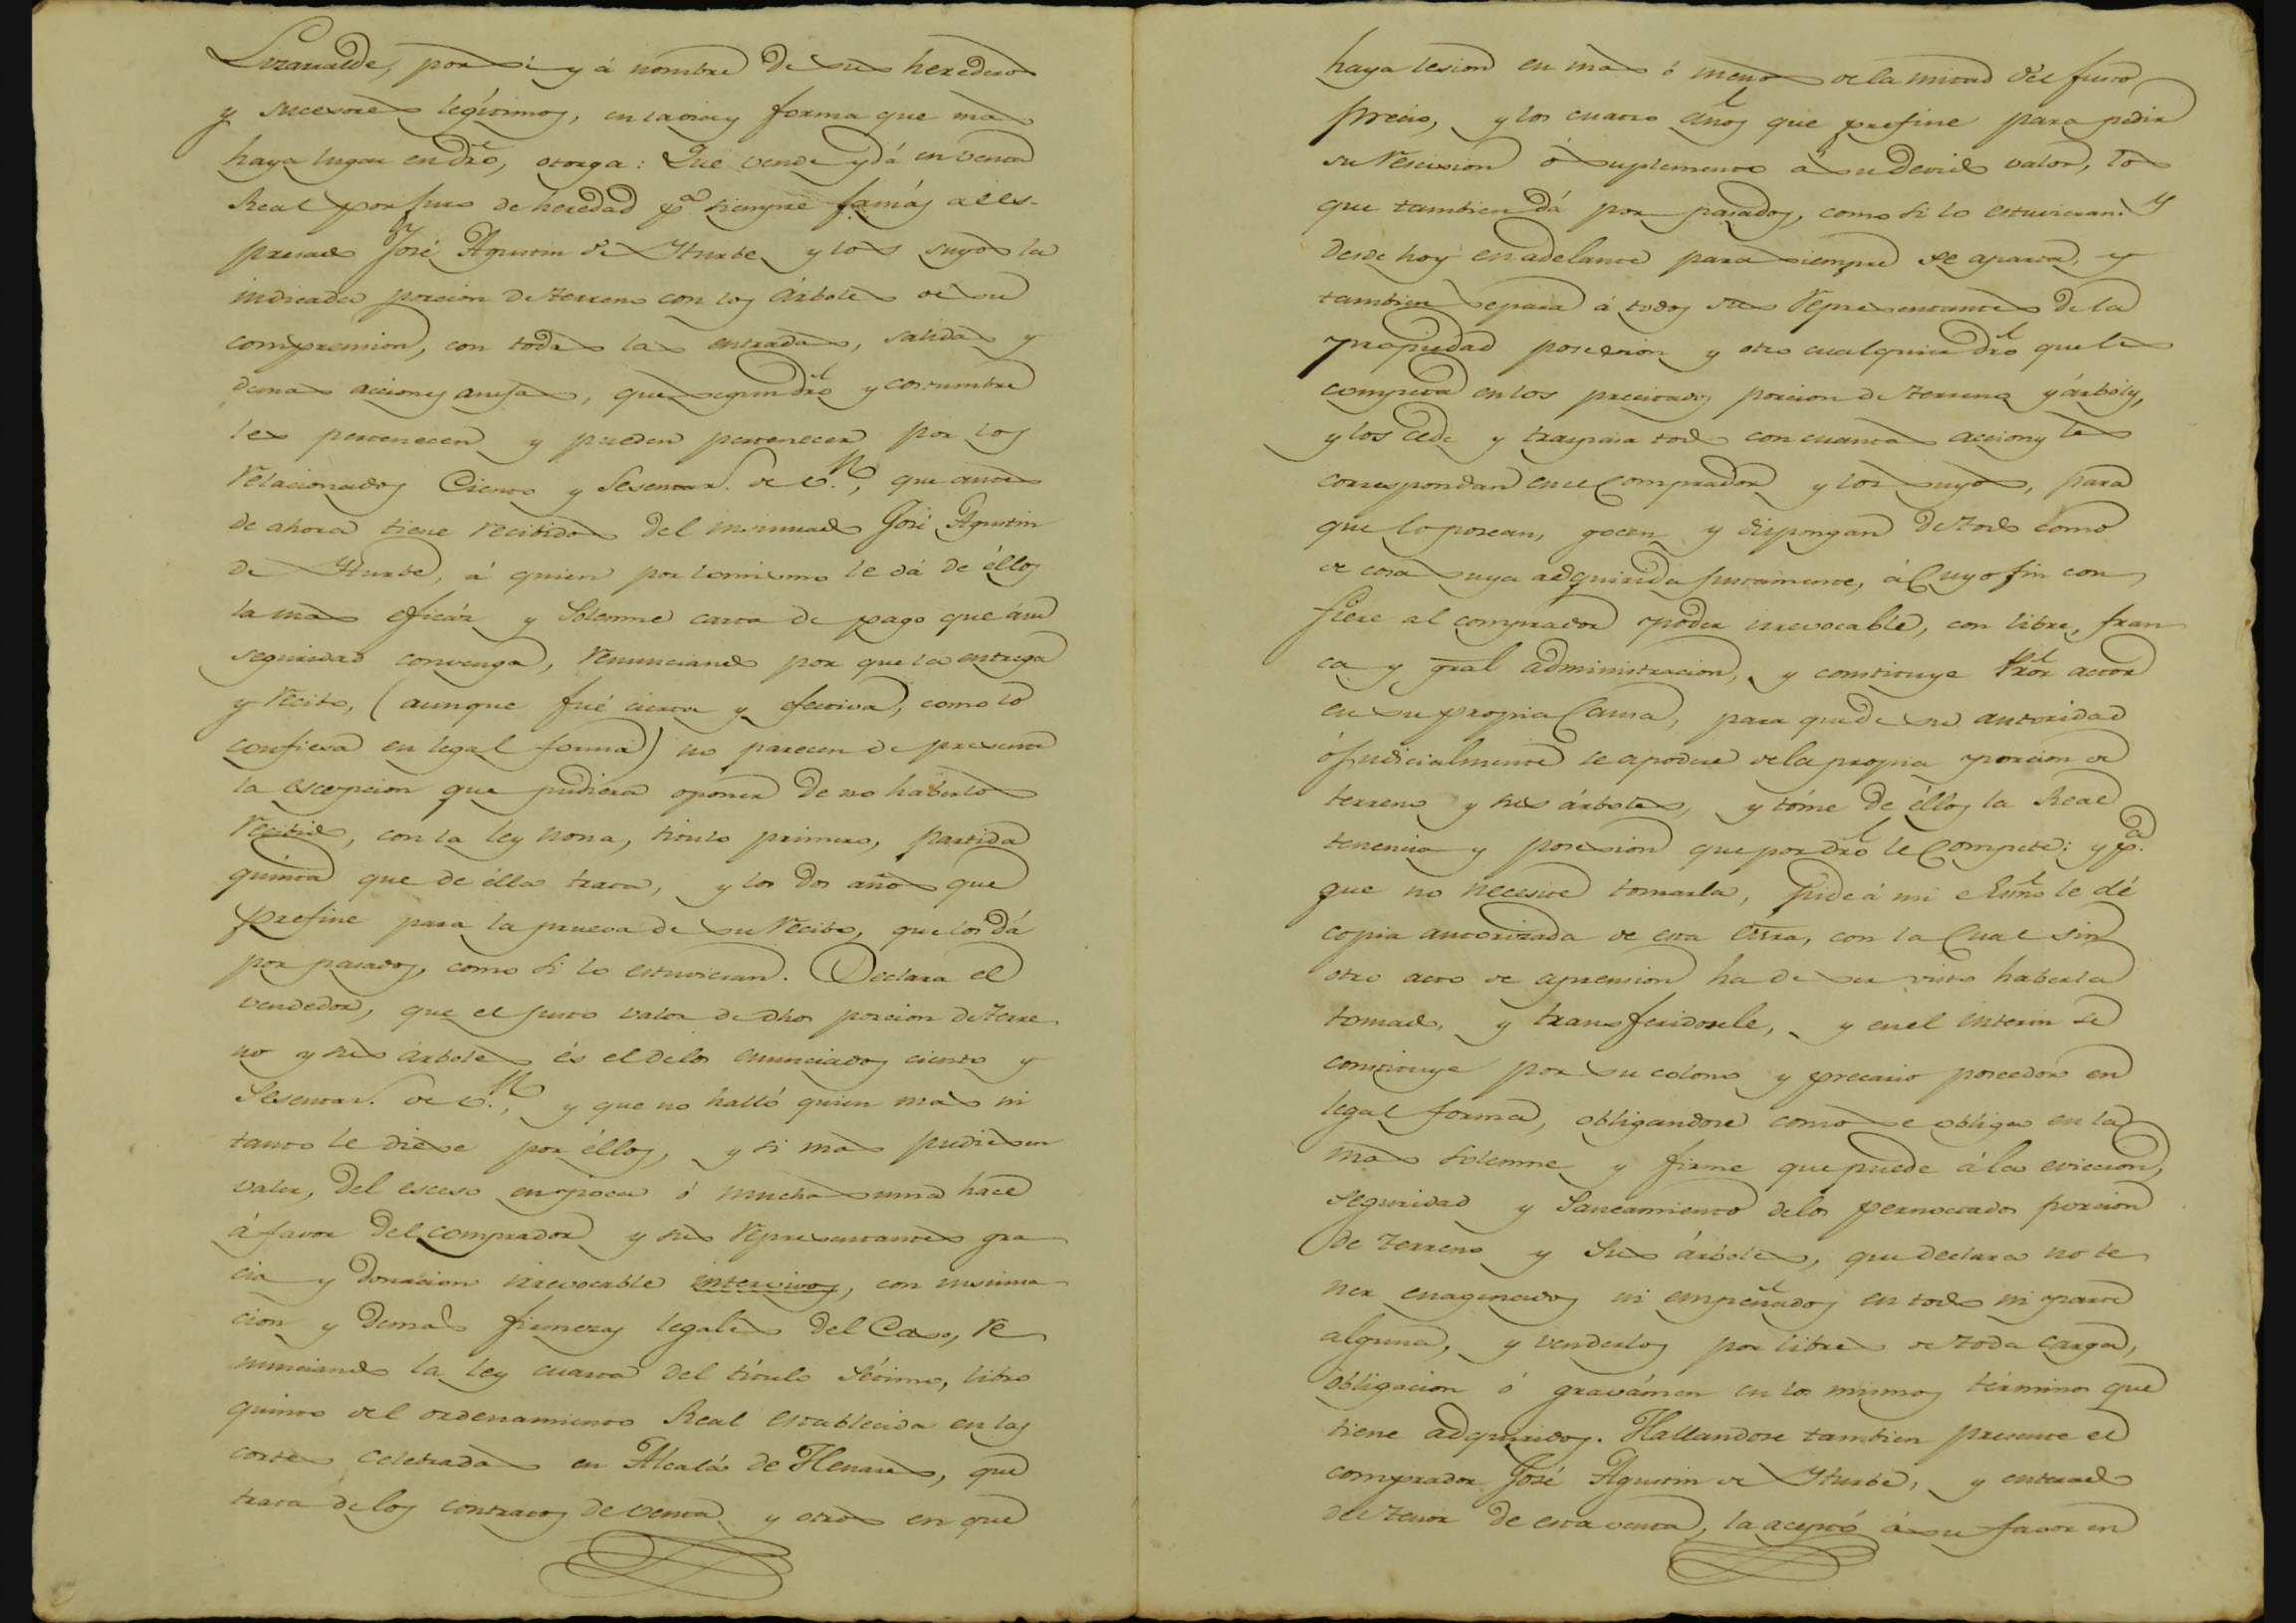 Lizarralde, por sí y á nombre de sus herederos
y sucesores legítimos, en la via y forma que mas
haya lugar en dro, otorga: Que vende y dá en venta
Real por juro de heredad pª siempre jamás al es-
presado José Agustin de Yturbe y los suyos la
indicada porcion de terreno con los árboles de su
compremion, con todas las entradas, salidas y
demas acciones anejas, que segun dro y costumbre
les pertenecen y pueden pertenecer por los
relacionados Ciento y Sesenta r. de v.n, que antes
de ahora tiene recibidos del insinuado José Agustin
de Yturbe, á quien por lo mismo le dá de éllos
la mas eficáz y Solemne carta de pago que á su
seguridad convenga, renunciando por que la entrega
y recibo, (aunque fué cierta y efectiva, como lo
confiesa en legal forma) no parecen de presente
la escepcion que pudiera oponer de no haberlos
recibido, con la ley nona, título primero, partida
quinta que de élla trata, y los dos años que
prefine para la prueva de su recibo, que los dá
por pasados, como si lo estuvieran. Declara el
vendedor, que el justo valor de dhos porcion de terre
no y sus árboles és el de los enunciados ciento y
Sesenta r. de v.n, y que no halló quien mas ni
tanto le diese por éllos, y si mas pudiesen
valer, del esceso en poca ó mucha suma hace
á favor del comprador y sus representantes gra
cia y donacion irrevocable intervivos, con insinua
cion y demas firmezas legales del Caso, re
nunciando la ley cuarta del título Sétimo, libro
quinto del ordenamiento Real establecida en las
cortes celebradas en Alcalá de Henares, que
trata de los contratos de venta y otros en que
haya lesion en mas ó menos de la mitad del justo
precio, y los cuatro años que prefine para pedir
su rescision ó suplemento á su devido valor, los
que tambien dá por pasados, como si lo estuvieran. Y
desde hoy en adelante para siempre se aparta, y
tambien separa á todos sus representantes de la
propiedad posesion y otro cualquiera dro que le
competa en los precitados porcion de terreno y árboles,
y los cede y traspasa todo con cuantas acciones les
correspondan en el comprador y los suyos, para
que lo posean, gocen y dispongan de todo como
de cosa suya adquirida justamente, á Cuyo fin con
fiere al comprador poder irrevocable, con libre, fran
ca y gral administracion, y constituye Pror actor
en su propia Causa, para que de su autoridad
ó judicialmente se apodere de la propia porcion de
terreno y sus árboles, y tóme de éllos la Real
tenencia y posesion que por dro le Compete; y pª
que no necesite tomarla, pide á mi el Esno le dé
copia autorizada de esta Essra, con la Cual sin
otro acto de aprension ha de ser visto haberla
tomado, y transferidosele, y en el interin se
constituye por su colono y precario poseedor en
legal forma, obligandose como se obliga en la
mas solemne y firme que puede á la eviccion,
seguridad y Saneamiento de los pernoctados porcion
de terreno y Sus árboles, que declara no te
ner enagenados ni empeñados en todo ni parte
alguna, y venderlos por libres de toda carga,
obligacion ó gravámen en los mismos términos que
tiene adquiridos. Hallandose tambien presente el
comprador José Agustin de Yturbe, y enterado
del tenor de esta venta, la aceptó á su favor en